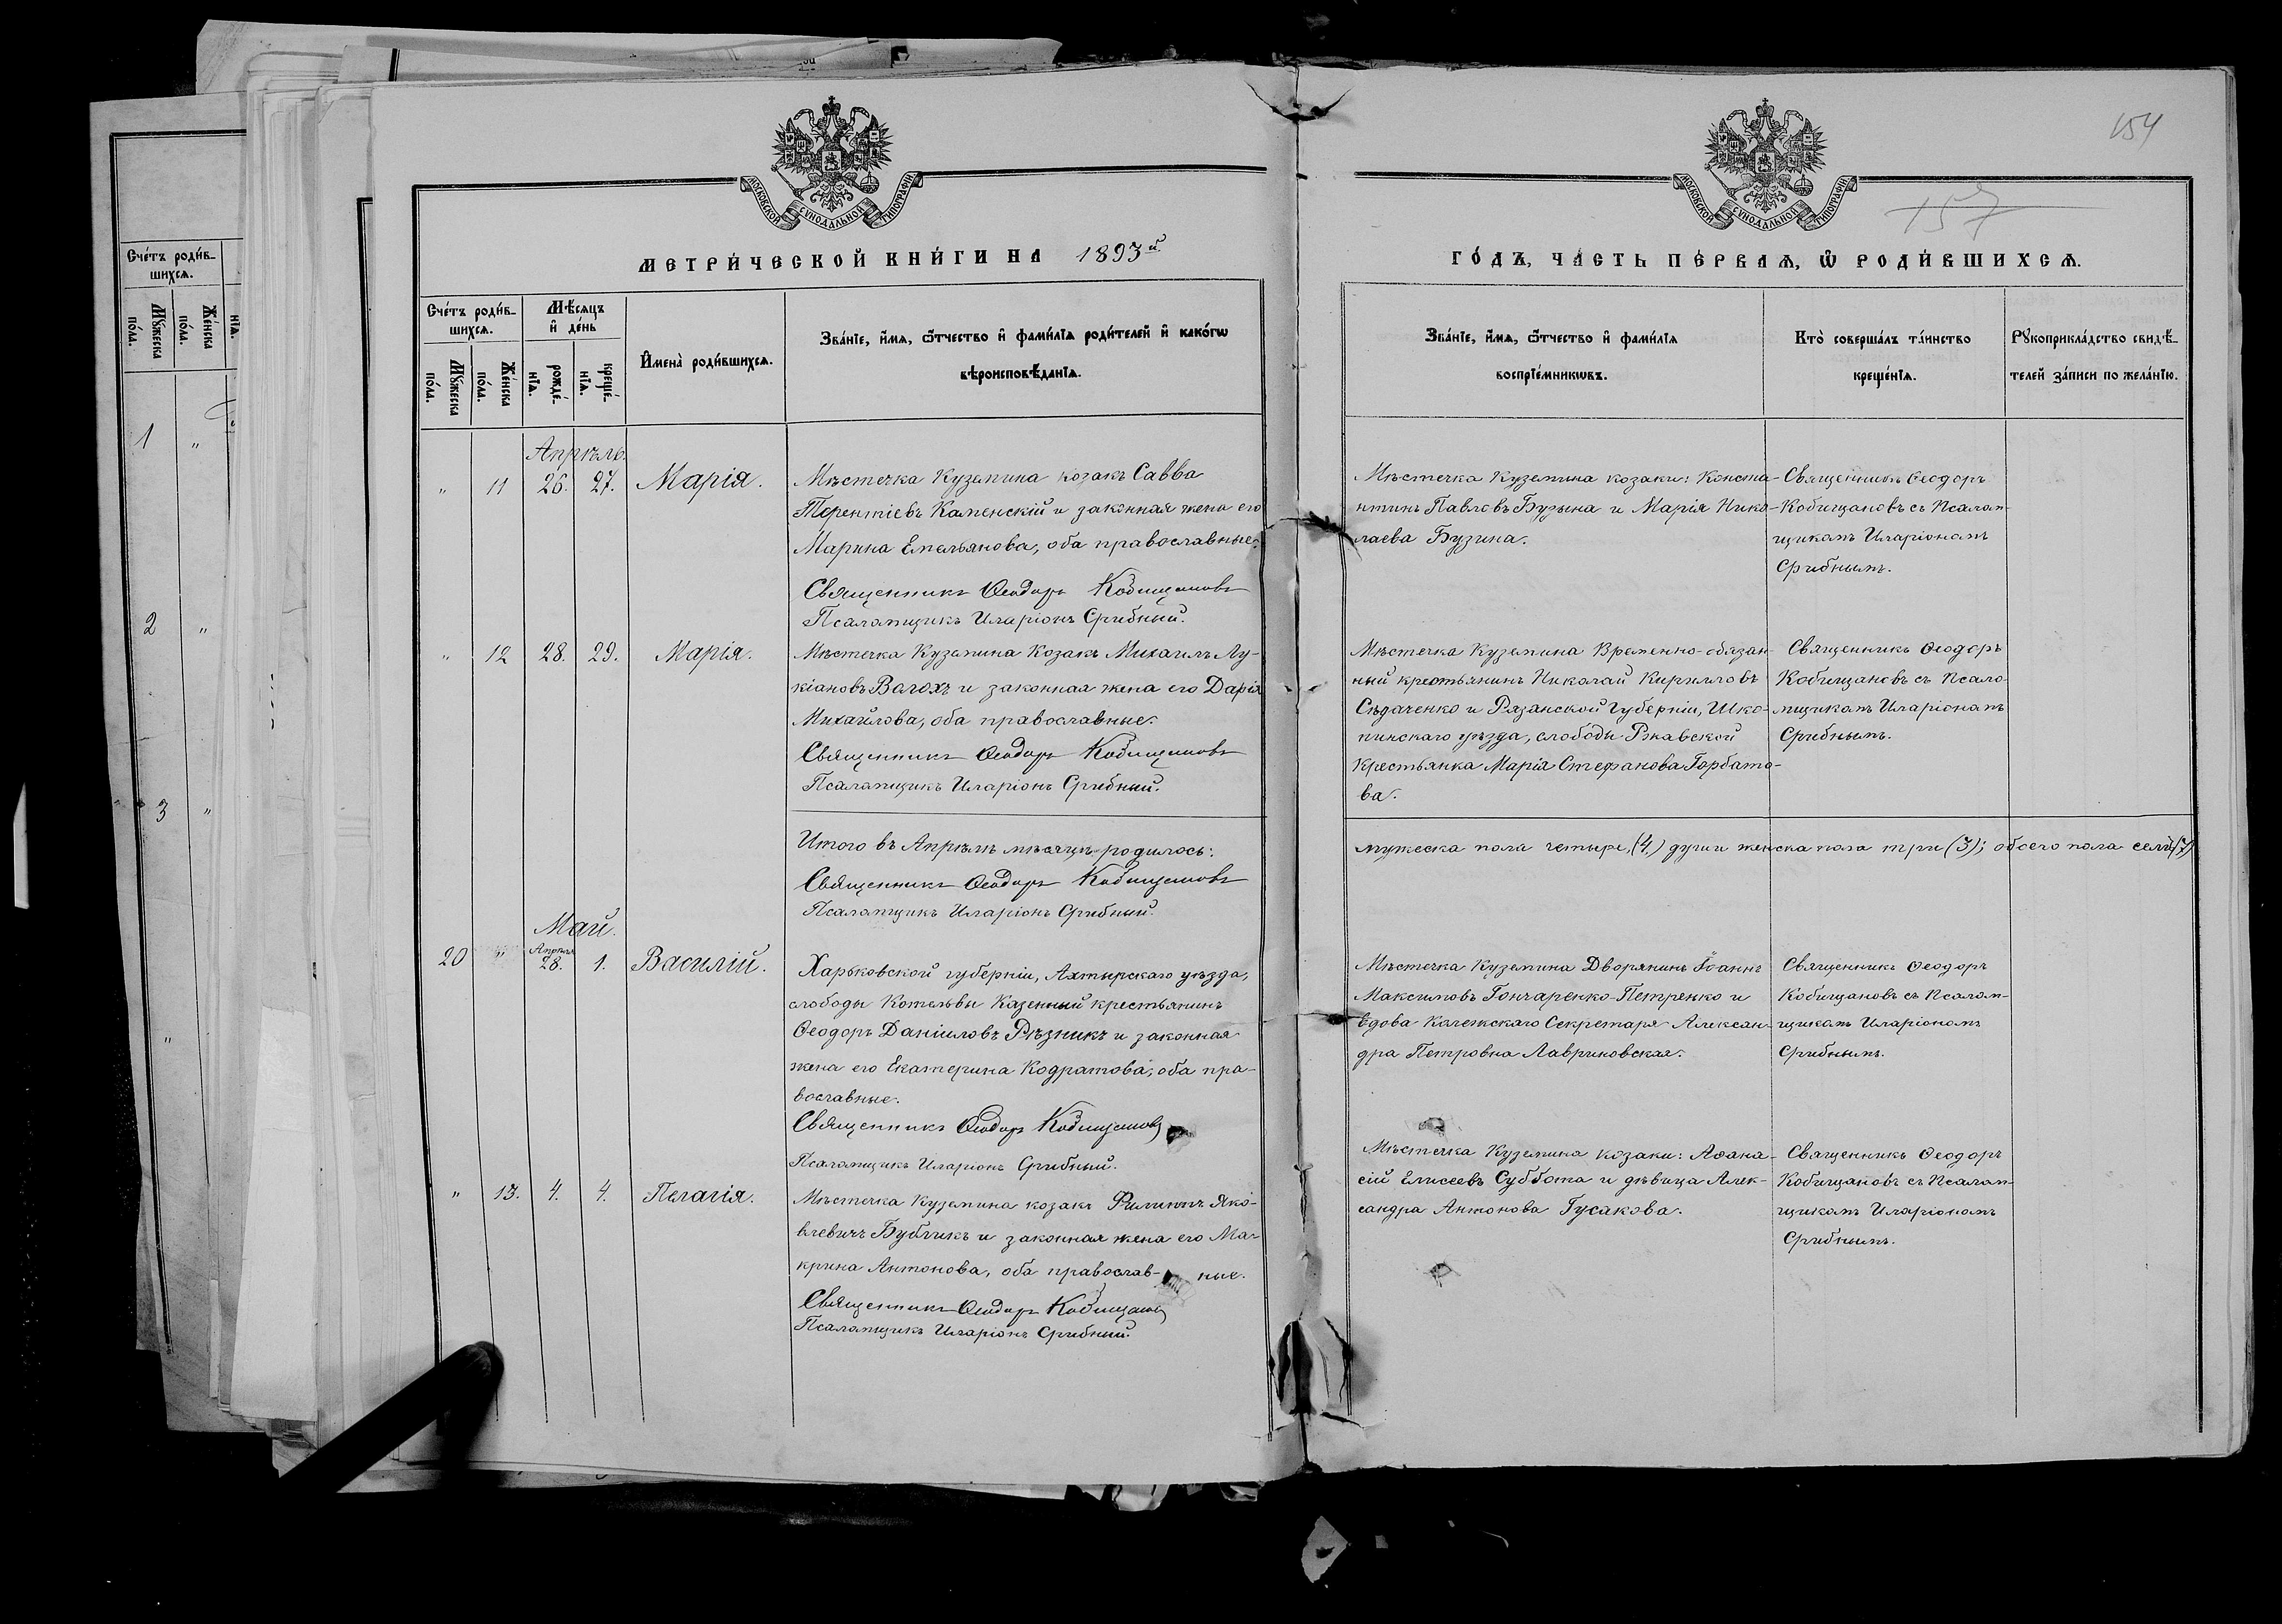 154
157
МОСКОВСКОЙ СУНОДАЛЬНОЙ ТИПОГРАФІИ
МОСКОВСКОЙ СУНОДАЛЬНОЙ ТИПОГРАФІИ
МЕТРИ́ЧЕСКОЙ КНИ́ГИ НА 1893й
ГО́ДЪ, ЧА́СТЬ ПЕ́РВАѦ, Ѡ РОДИ́ВШИХСѦ.
Сче́тъ роди́в-
шихсѧ.
Мꙋ́жеска по́ла.
Же́нска по́ла.
Сче́тъ роди́в-
шихсѧ.
Мꙋ́жеска по́ла.
Же́нска по́ла.
Мѣ́сяцъ
и де́нь
рожде́-
нїѧ.
креще́-
нїѧ.
Имена̀ роди́вшихсѧ.
Зва́нїе, и́мѧ, ѿчество и фами́лїѧ роди́телей и како́гѡ
вѣроисповѣ́данїѧ.
Зва́нїе, и́мѧ, ѿчество и фами́лїѧ
воспрїе́мникѡвъ.
Кто̀ соверша́лъ та́инство
креще́нїѧ.
Рꙋкоприкла́дство свидѣ́-
телей за́писи по жела́нїю.
1 "
2 "
3 "
"
Апрѣль.
" 11 26. 27. Марія.
Мѣстечка Куземина козакъ Савва
Терентіевъ Каменскій и законная жена его
Марина Емельянова, оба православные.
Священникъ Ѳеодоръ Кобищановъ
Псаломщикъ Иларіонъ Срибный.
Мѣстечка Куземина козаки: Конста-
нтинъ Павловъ Бузына и Марія Нико-
лаева Бузина.
Священникъ Ѳеодоръ
Кобищановъ съ Псалом-
щикомъ Иларіономъ
Срибнымъ.
" 12 28. 29. Марія.
Мѣстечка Куземина Козакъ Михаилъ Лу-
кіановъ Волохъ и законная жена его Дарія
Михайлова, оба православные.
Священникъ Ѳеодоръ Кобищановъ
Псаломщикъ Иларіонъ Срибный.
Мѣстечка Куземина Временно-обязан-
ный крестьянинъ Николай Кирилловъ
Сѣдаченко и Рязанской Губерніи, Ско-
пинскаго уѣзда, слободы Ржавской
Крестьянка Марія Стефанова Горбато-
ва.
Священникъ Ѳеодоръ
Кобищановъ съ Псало-
мщикомъ Иларіономъ
Срибнымъ.
Итого въ Апрѣлѣ мѣсяцѣ родилось:
мужеска пола четыре, (4,) души женска пола три (3); обоего пола семь (7)
Священникъ Ѳеодоръ Кобищановъ
Псаломщикъ Иларіонъ Срибный.
Май.
20 " Апрѣля 28. 1. Василій.
Харьковской губерніи, Ахтырскаго уѣзда,
слободы Котельвы Казенный крестьянинъ
Ѳеодоръ Даніиловъ Рѣзникъ и законная
жена его Екатерина Кодратова, оба пра-
вославные.
Священникъ Ѳеодоръ Кобищановъ
Псаломщикъ Иларіонъ Срибный.
Мѣстечка Куземина Дворянинъ Іоаннъ
Максимовъ Гончаренко-Петренко и
вдова Колежскаго Секретаря Алексан-
дра Петровна Лавриновская.
Священникъ Ѳеодоръ
Кобищановъ съ Псалом-
щикомъ Иларіономъ
Срибнымъ.
" 13. 4. 4. Пелагія.
Мѣстечка Куземина козакъ Филиппъ Яко-
влевичъ Бубликъ и законная жена его Ма-
крина Антонова, оба православ- ные.
Священникъ Ѳеодоръ Кобищановъ
Псаломщикъ Иларіонъ Срибный.
Мѣстечка Куземина козаки: Аѳана-
сій Елисеевъ Суббота и дѣвица Алек-
сандра Антонова Гусакова.
Священникъ Ѳеодоръ
Кобищановъ съ Псалом-
щикомъ Иларіономъ
Срибнымъ.